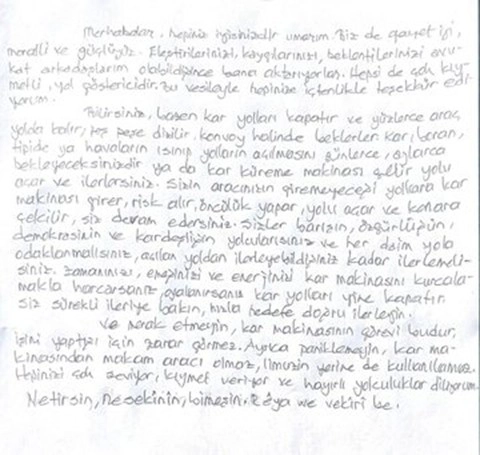 Merhabalar, hepiniz iyisinizdir umarım. Biz de gayet iyi,
moralli ve güçlüyüz. Eleştirilerinizi, kaygılarınızı, beklentilerinizi avu-
kat arkadaşlarım olabildiğince bana aktarıyorlar. Hepsi de çok kıy-
metli, yol göstericidir. Bu vesileyle hepinize içtenlikle teşekkür edi-
yorum.
Bilirsiniz, bazen kar yolları kapatır ve yüzlerce araç
yolda kalır, peş peşe dizilir. Konvoy halinde beklerler. Kar, boran,
tipide ya havaların ısınıp yolların açılmasını günlerce, aylarca
bekleyeceksinizdir ya da kar küreme makinası gelir yolu
açar ve ilerlersiniz. Sizin aracınızın giremeyeceği yollara kar
makinası girer, risk alır, öncülük yapar, yolu açar ve kenara
çekilir, siz devam edersiniz. Sizler barışın, özgürlüğün,
demokrasinin ve kardeşliğin yolcularısınız ve her daim yola
odaklanmalısınız, açılan yoldan ilerleyebildiğiniz kadar ilerlemeli-
siniz. Zamanınızı, emeğinizi ve enerjinizi kar makinasını kurcala-
makla harcarsanız, oyalanırsanız kar yolları yine kapatır.
Siz sürekli ileriye bakın, hızla hedefe doğru ilerleyin.
Ve merak etmeyin, kar makinasının görevi budur,
işini yaptığı için zarar görmez. Ayrıca paniklemeyin, kar ma-
kinasından makam aracı olmaz, limuzin yerine de kullanılamaz.
Hepinizi çok seviyor, kıymet veriyor ve hayırlı yolculuklar diliyorum.
Netirsin, nesekinin, bimeşin. Rêya we vekirî be.